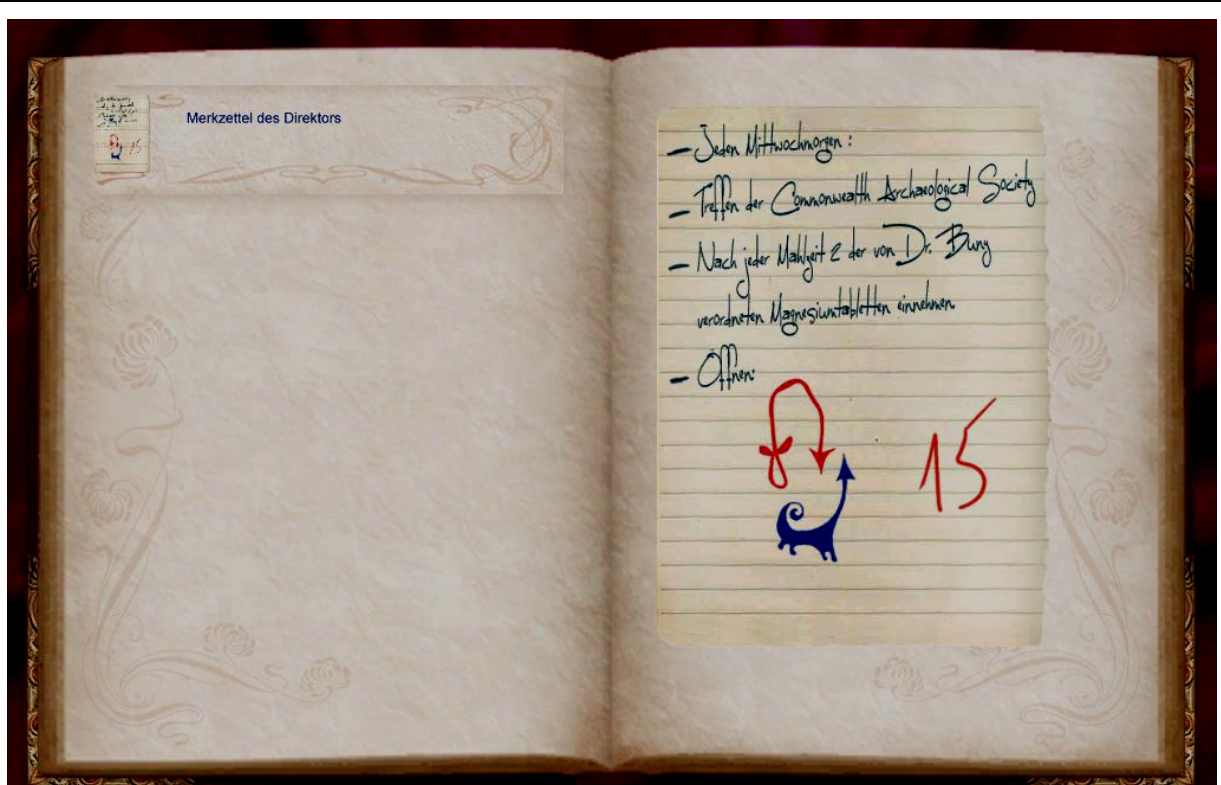 Merkzettel des Direktors
– Jeden Mittwochmorgen:
– Treffen der Commonwealth Archaeological Society
– Nach jeder Mahlzeit 2 der von Dr. Bung
verordneten Magnesiumtabletten einnehmen
– Öffnen:
15